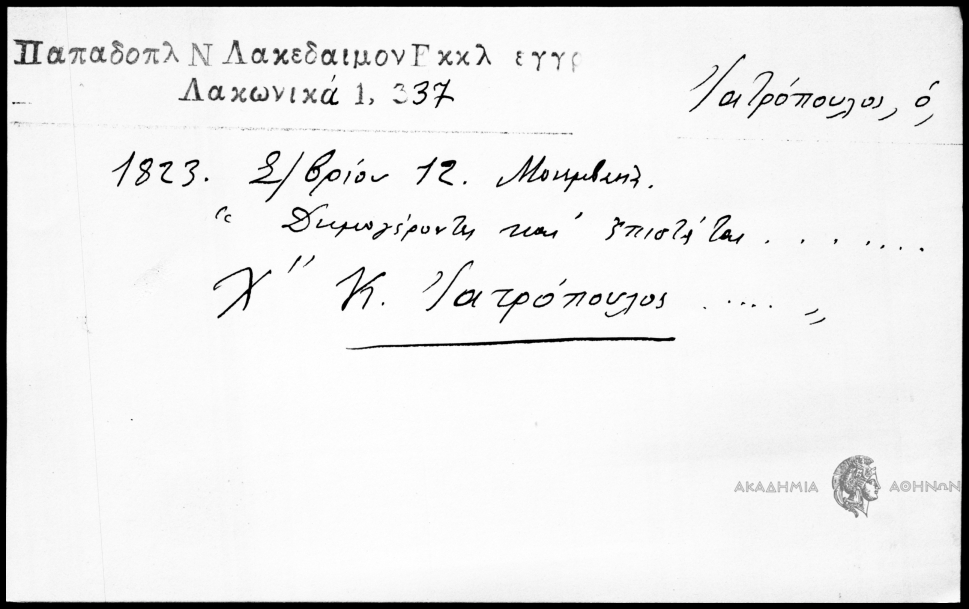 Παπαδοπλ Ν Λακεδαιμον Εκκλ εγγρ
Λακωνικά 1, 337
Ἰατρόπουλος, ὁ,
1823. Σ/βρίου 12. Μονεμβασ.
“ Δημογέροντες καὶ ἐπιστάται . . . . . . .
Χ" Κ. Ἰατρόπουλος ..... „
ΑΚΑΔΗΜΙΑ ΑΘΗΝΩΝ